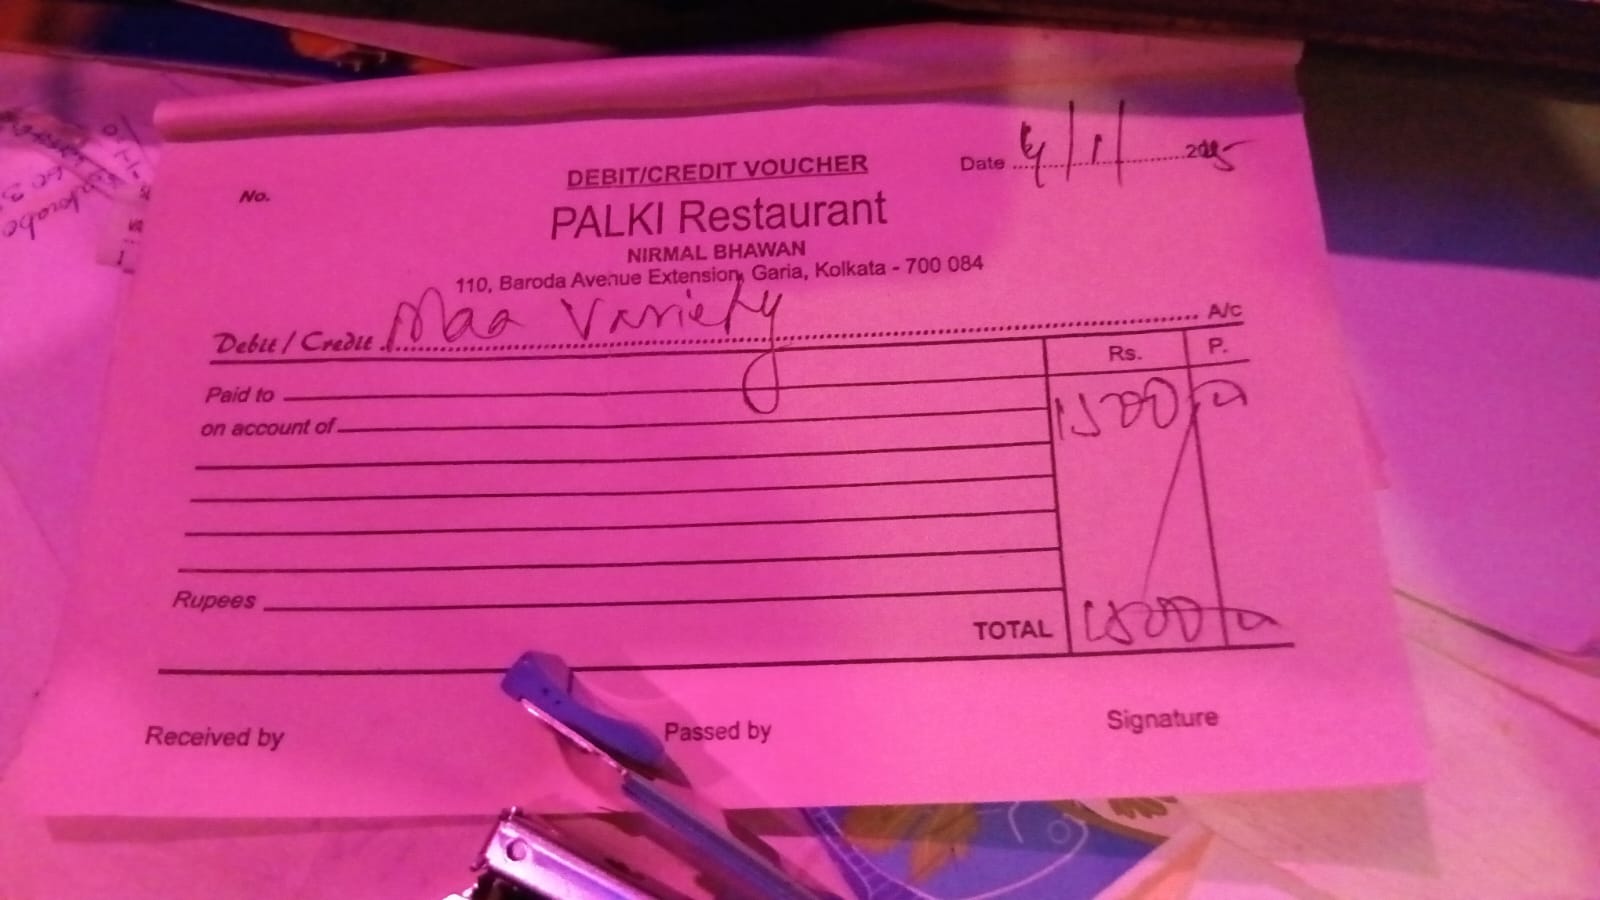 No.
DEBIT/CREDIT VOUCHER
Date 4/1/2025
PALKI Restaurant
NIRMAL BHAWAN
110, Baroda Avenue Extension, Garia, Kolkata - 700 084
Debit / Credit Maa Variety A/c
Rs. P.
Paid to 1500
on account of
Rupees
TOTAL 1500
Received by Passed by Signature